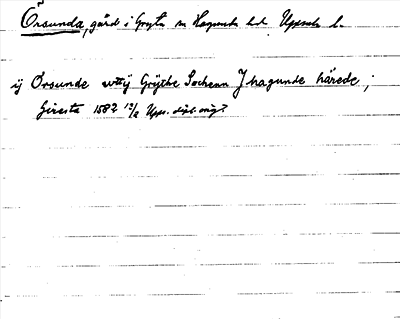 Örsunda, gård i Gryta sn Hagunda hd Uppsala l.
ij Örsunde wtij Grythe Sochenn J hagunde härede;
Giresta 1582 13/2 Upps. dipl. orig.